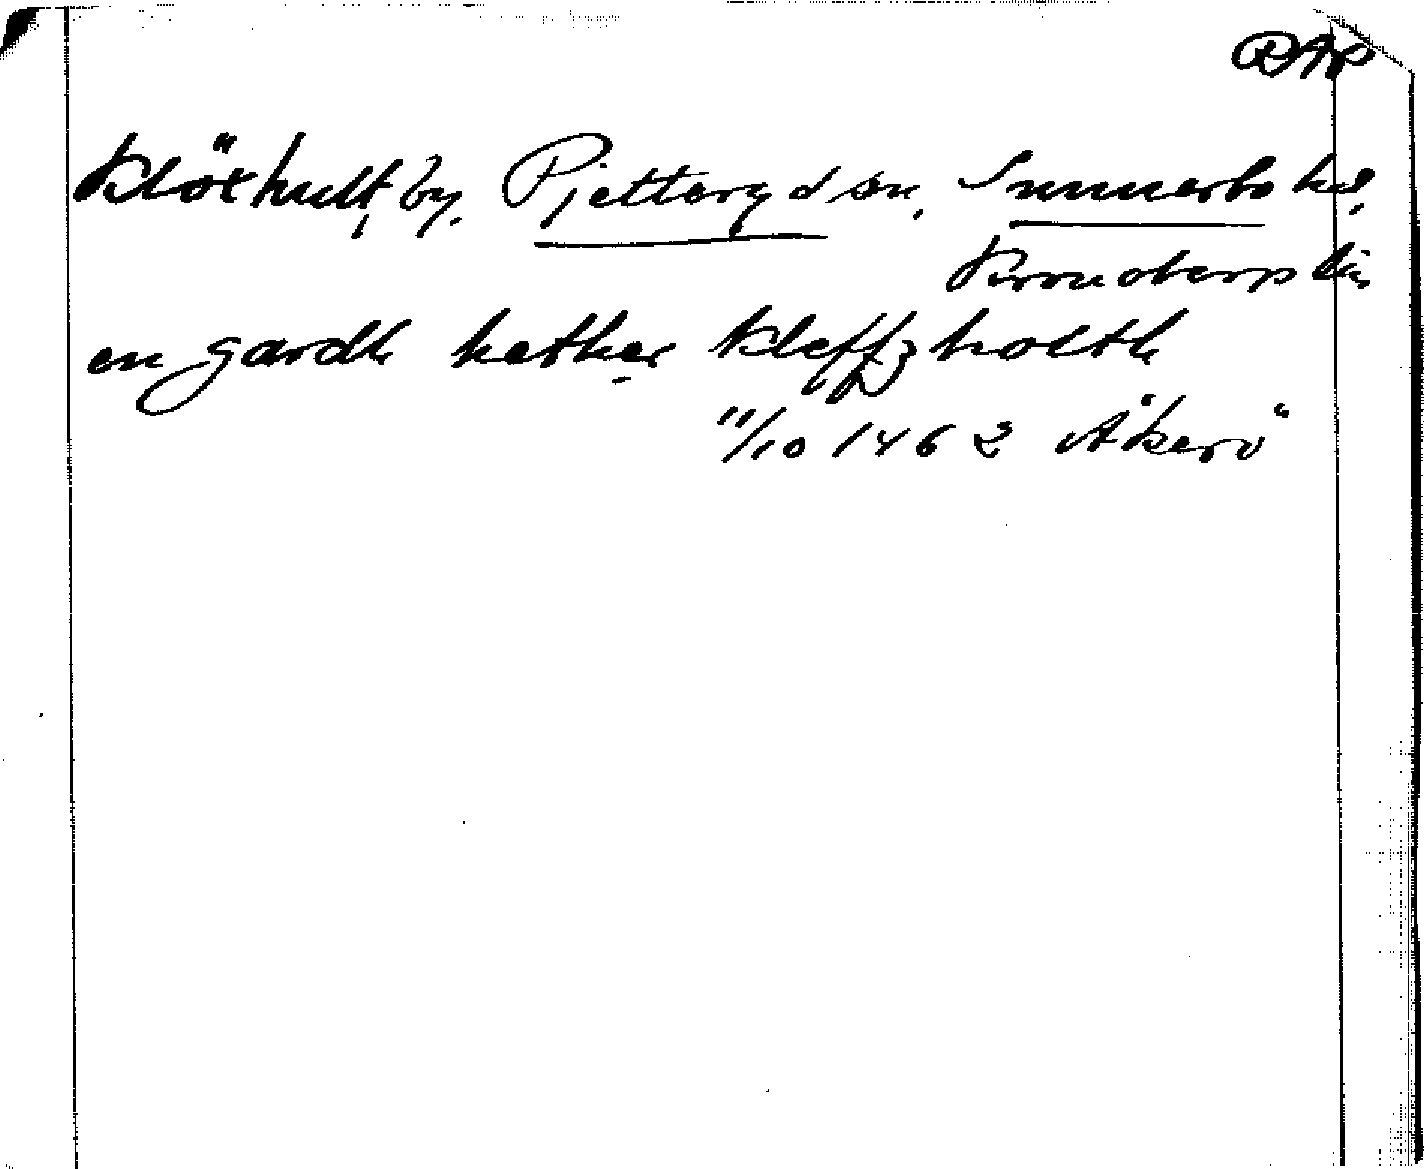 RAP
Klöxhult, by, Pjetteryd sn, Sunnerbo hd,
Kronobergs län
en gardh hether kleffzholth
11/10 1462 Åkerö